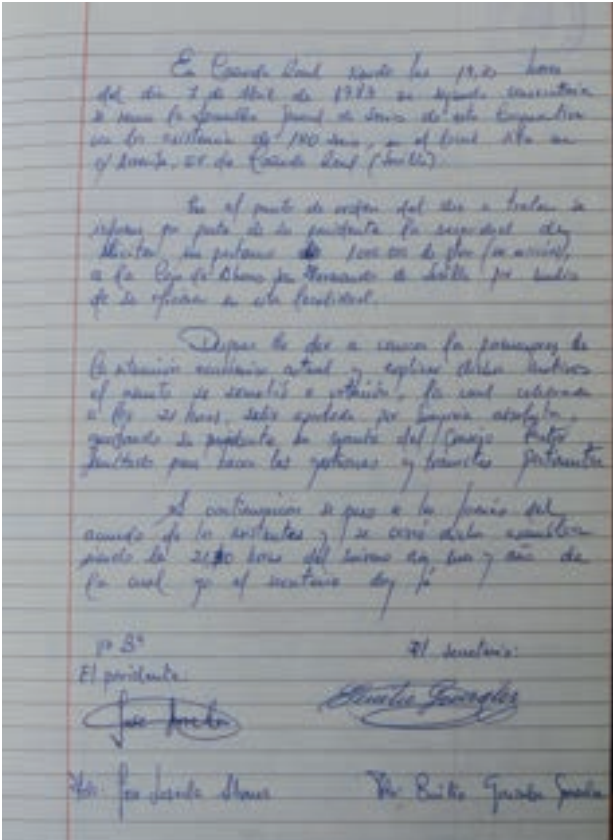 En        Real siendo las 19,30 horas
del día 7 de Abril de 1989 en segunda convocatoria
se reune la Asamblea General de Socios de esta Cooperativa
con la asistencia de 140 socios, en el local sito en
c/                 de        Real (Sevilla).
En el punto de orden del día a tratar se
informa por parte de su presidente la necesidad de
solicitar un préstamo de 1.000.000 de ptas (un millón),
a la Caja de Ahorros San Fernando de Sevilla por medio
de su oficina en esta localidad.
Despues de dar a conocer
la situación económica actual y explicar dichos motivos
el asunto se sometió a votación, la cual celebrada
a las 21 horas, salió aprobada por mayoría absoluta,
quedando su presidente en       del Consejo Rector
facultado para hacer las gestiones y trámites pertinentes
A continuación se paso a la       del
acuerdo de los asistentes y se cerró dicha asamblea
siendo las      horas del mismo día, mes y año de
la cual yo el secretario doy fé
Vº Bº
El secretario:
El presidente:
Jose
Emilio González
Fdo: Jose
Fdo: Emilio González